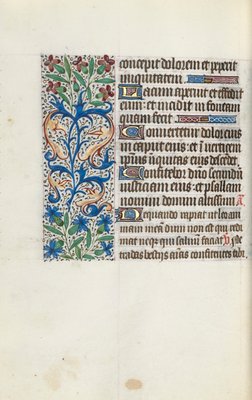 concepit dolorem et peperit
iniquitatem
Lacum aperuit et effodit
eum: et incidit in foueam
quam fecit
Conuertetur dolor eius
in caput eius: et in uerticem
ipsius iniquitas eius descendet
Confitebor dño secundum
iusticiam eius: et psallam
nomini domini altissimi A
Nequando rapiat ut leo ani
mam meam dum non est qui redi
mat neqz qui saluum faciat V Ne
tradas bestiis aĩas confitentes tibi